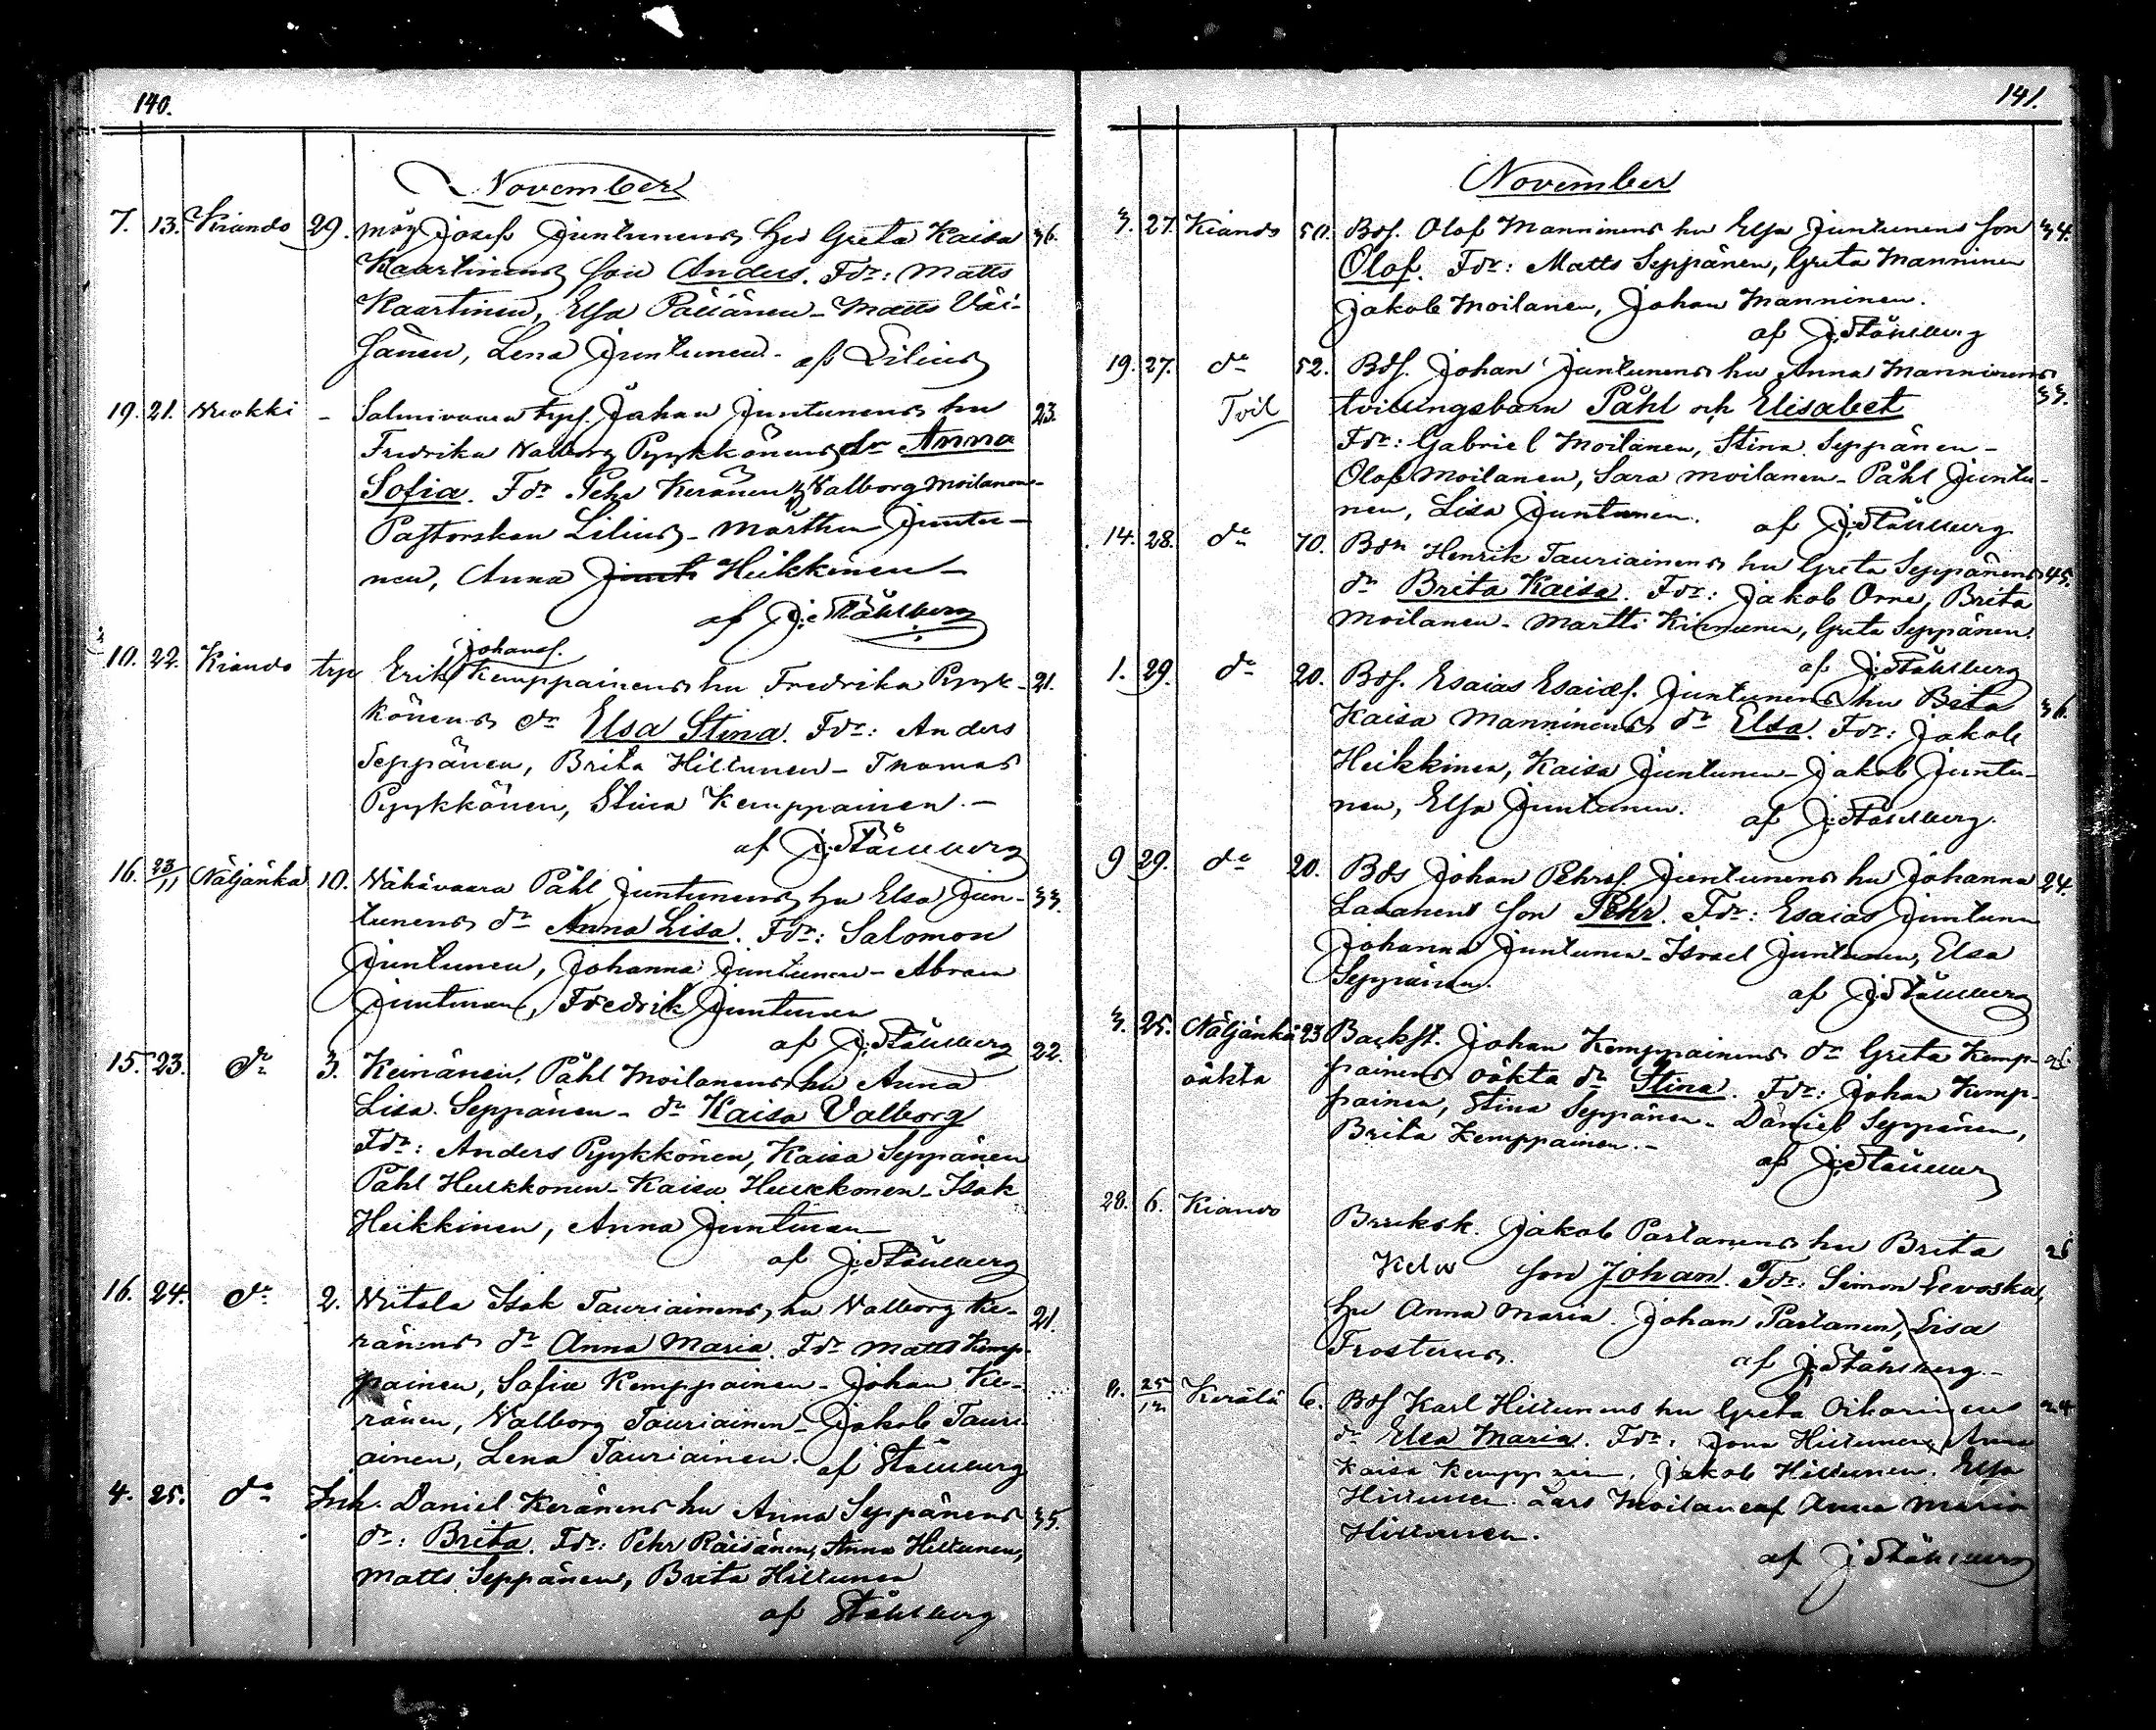 140.
November
7. 13. Kiando 29. Josef Juntunens hu Greta Kaisa 36.
Kaartinens son Anders. Fdr: Matts
Kaartinen, Elsa Matts Väi-
sänen, Lena Juntunen. af Lilius
19. 21. - Johan Juntunens hu 23.
Fredrika Valborg Pyykkönens dr Anna
Sofia. Fdr Pehr Keränen, Valborg Moilanen-
Pastorskan Lilius - Juntu-
nen, Anna Heikkinen -
af J. Ståhlberg
Johans.
10. 22. Kiando Erik Kemppainens hu Fredrika Pyyk- 21.
könens dr Elsa Stina. Fdr: Anders
Seppänen, Brita Hiltunen - Thomas
Pyykkönen, Stina Kemppainen. -
af J. Ståhlberg
16. 23/11 Näljänkä 10. Påhl Juntunens hu Elsa Jun- 33.
tunens dr Anna Lisa. Fdr: Salomon
Juntunen, Johanna Juntunen - Abram
Juntunen, Fredrik Juntunen
af J. Ståhlberg
15. 23. dr 3. Keinänen, Påhl Moilanens hu Anna 22.
Lisa Seppänen - dr Kaisa Valborg
Fdr: Anders Pyykkönen, Kaisa Seppänen
Påhl Hulkkonen - Kaisa Hulkkonen - Isak
Heikkinen, Anna Juntunen
af J. Ståhlberg
16. 24. dr 2. Isak Tauriainens hu Valborg Ke- 21.
ränens dr Anna Maria. Fdr Matts Kemp-
painen, Sofia Kemppainen - Johan Ke-
ränen, Valborg Tauriainen - Jakob Tauri-
ainen, Lena Tauriainen. af Ståhlberg
4. 25. dr Inh. Daniel Keränens hu Anna Seppänens 35.
dr: Brita. Fdr: Pehr Räisänen, Anna Hiltunen,
Matts Seppänen, Brita Hiltunen
af Ståhlberg
141.
November
3. 27. Kiando 50. Bds. Olof Manninens hu Elsa Juntunens son 34.
Olof. Fdr: Matts Seppänen, Greta Manninen
Jakob Moilanen, Johan Manninen.
af J. Ståhlberg
19. 27. dr 52. Bds. Johan Juntunens hu Anna Manninens
Tvil tvillingsbarn Påhl och Elisabet 33.
Fdr: Gabriel Moilanen, Stina Seppänen -
Olof Moilanen, Sara Moilanen - Påhl Juntu-
nen, Lisa Juntunen. af J. Ståhlberg
14. 28. dr 70. Bdn Henrik Tauriainens hu Greta Seppänens 45.
dr Brita Kaisa. Fdr: Jakob Orre, Brita
Moilanen - Martti Kinnunen, Greta Seppänen.
af J. Ståhlberg
1. 29. dr 20. Bds. Esaias Esaias. Juntunens hu Beta 36.
Kaisa Manninens dr Elsa. Fdr: Jakob
Heikkinen, Kaisa Juntunen - Jakob Juntu-
nen, Elsa Juntunen. af J. Ståhlberg.
9 29. dr 20. Bds Johan Pehrs. Juntunens hu Johanna 24.
son Pehr. Fdr: Esaias Juntunen
Johanna Juntunen - Israel Juntunen, Elsa
Seppänen. af J. Ståhlberg
3. 25. Näljänkä 23 Backst. Johan Kemppainens dr Greta Kemp-
oäkta painens oäkta dr Stina. Fdr: Johan Kemp-
painen, Stina Seppänen - Daniel Seppänen,
Brita Kemppainen. -
af J. Ståhlberg
28. 6. Kiando
Jakob Partanens hu Brita
son Johan. Fdr: Simon Levoska,
hu Anna Maria. Johan Partanen, Lisa
Frosterus. af J. Ståhlberg. -
25/12 Kerälä 6. Bds Karl Hiltunens hu Greta Oikarinens 24
dr Elsa Maria. Fdr: Jona Hiltunen, Anna
Kaisa Kemppainen. Jakob Hiltunen. Elsa
Hiltunen. Lars Moilanen Anna Maria
Hiltunen.
af J Ståhlberg